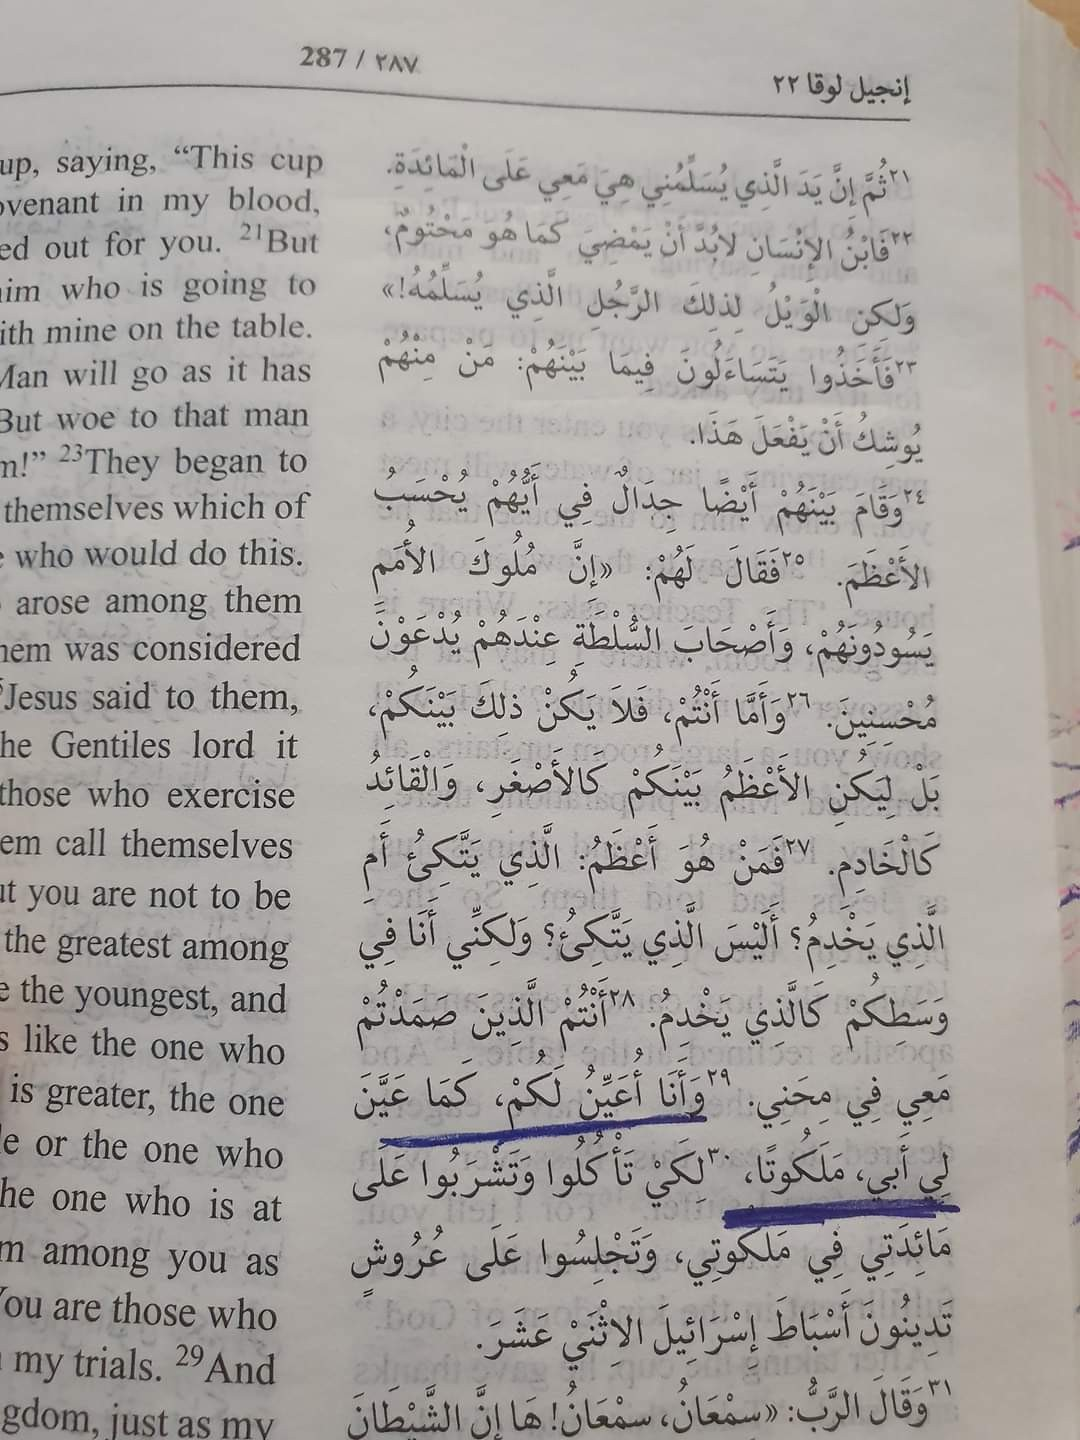 287 / ٢٨٧
إنجيل لوقا ٢٢
up, saying, “This cup
ovenant in my blood,
ed out for you. 21But
him who is going to
ith mine on the table.
Man will go as it has
But woe to that man
m!” 23They began to
themselves which of
who would do this.
arose among them
hem was considered
Jesus said to them,
he Gentiles lord it
those who exercise
em call themselves
ut you are not to be
the greatest among
e the youngest, and
s like the one who
is greater, the one
le or the one who
he one who is at
m among you as
You are those who
my trials. 29And
gdom, just as my
٢١ثُمَّ إِنَّ يَدَ الَّذِي يُسَلِّمُنِي هِيَ مَعِي عَلَى الْمَائِدَةِ.
٢٢فَابْنُ الإِنْسَانِ لابُدَّ أَنْ يَمْضِيَ كَمَا هُوَ مَحْتُومٌ،
وَلكِنِ الْوَيْلُ لِذلِكَ الرَّجُلِ الَّذِي يُسَلِّمُهُ!»
٢٣فَأَخَذُوا يَتَسَاءَلُونَ فِيمَا بَيْنَهُمْ: مَنْ مِنْهُمْ
يُوشِكُ أَنْ يَفْعَلَ هَذَا.
٢٤وَقَامَ بَيْنَهُمْ أَيْضًا جِدَالٌ فِي أَيُّهُمْ يُحْسَبُ
الأَعْظَمَ. ٢٥فَقَالَ لَهُمْ: «إِنَّ مُلُوكَ الأُمَمِ
يَسُودُونَهُمْ، وَأَصْحَابَ السُّلْطَةِ عِنْدَهُمْ يُدْعَوْنَ
مُحْسِنِينَ. ٢٦وَأَمَّا أَنْتُمْ، فَلاَ يَكُنْ ذلِكَ بَيْنَكُمْ،
بَلْ لِيَكُنِ الأَعْظَمُ بَيْنَكُمْ كَالأَصْغَرِ، وَالْقَائِدُ
كَالْخَادِمِ. ٢٧فَمَنْ هُوَ أَعْظَمُ: الَّذِي يَتَّكِئُ أَمِ
الَّذِي يَخْدِمُ؟ أَلَيْسَ الَّذِي يَتَّكِئُ؟ وَلكِنِّي أَنَا فِي
وَسَطِكُمْ كَالَّذِي يَخْدِمُ. ٢٨أَنْتُمُ الَّذِينَ صَمَدْتُمْ
مَعِي فِي مِحَنِي. ٢٩وَأَنَا أُعَيِّنُ لَكُمْ، كَمَا عَيَّنَ
لِي أَبِي، مَلَكُوتًا، ٣٠لِكَيْ تَأْكُلُوا وَتَشْرَبُوا عَلَى
مَائِدَتِي فِي مَلَكُوتِي، وَتَجْلِسُوا عَلَى عُرُوشٍ
تَدِينُونَ أَسْبَاطَ إِسْرَائِيلَ الاِثْنَيْ عَشَرَ.
٣١وَقَالَ الرَّبُّ: «سِمْعَانُ، سِمْعَانُ! هَا إِنَّ الشَّيْطَانَ